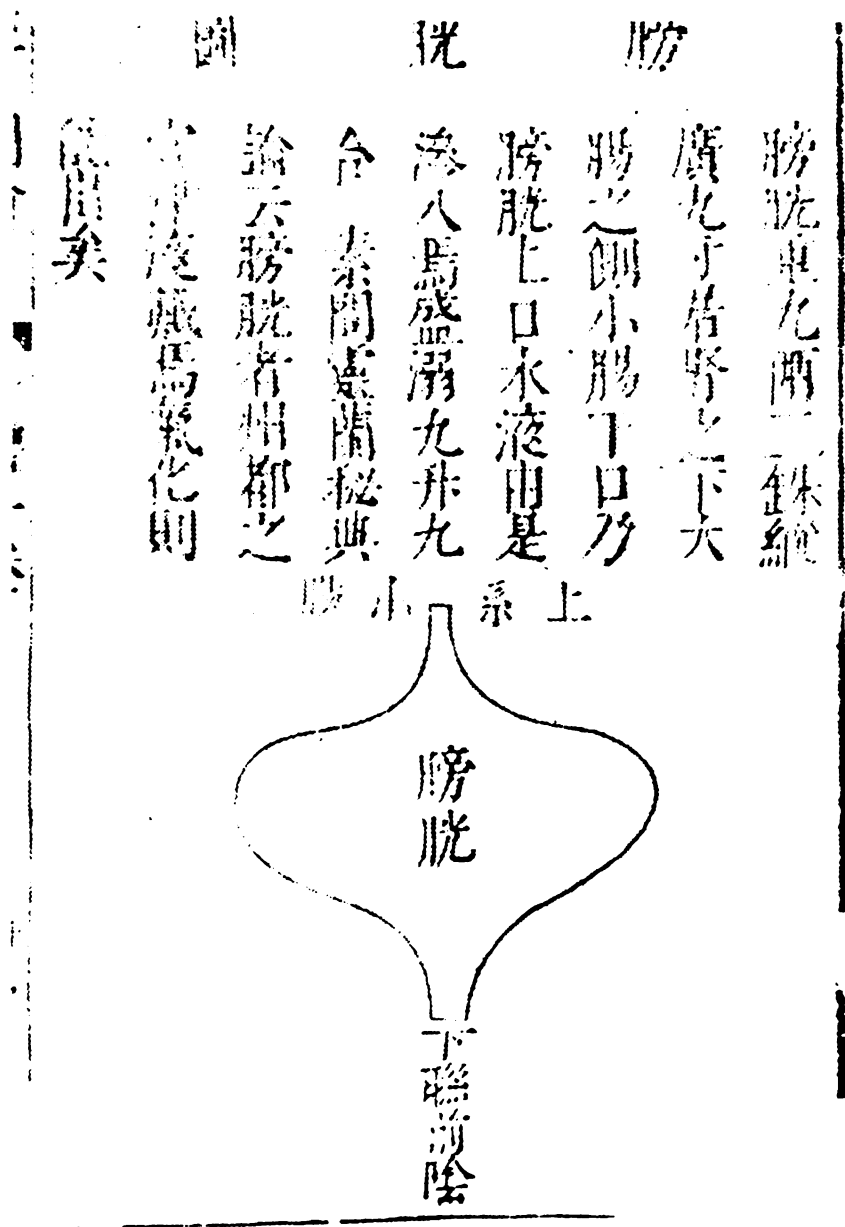 膀胱圖
膀胱重九兩二銖縱
廣九寸居腎之下大
腸之側小腸下口乃
膀胱上口水液由是
滲入焉盛溺九升九
合 素問靈蘭秘典
論云膀胱者州都之
官津液藏焉氣化則
能出矣
上系小腸
膀胱
下聯前陰